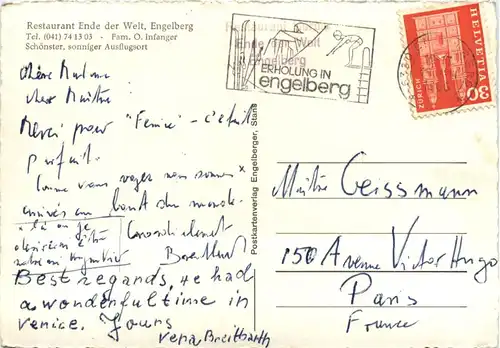 Restaurant Ende der Welt, Engelberg
Tel. (041) 74 13 03 - Fam. O. Infanger
Schönster, sonniger Ausflugsort
Restaurant
Ende der Welt
Engelberg
ERHOLUNG IN
engelberg
HELVETIA
ZÜRICH
30
Chère Madame
cher Maître
Merci pour "Fenice" - c'était
parfait.
Comme vous voyez nous sommes x
arrivés au bout du monde.
x là où je
Cordialement
Best regards, we had
a wonderful time in
Venice. Yours
Vera Breitbarth
Postkartenverlag Engelberger, Stans
Maître Geissmann
150 Avenue Victor Hugo
Paris
France